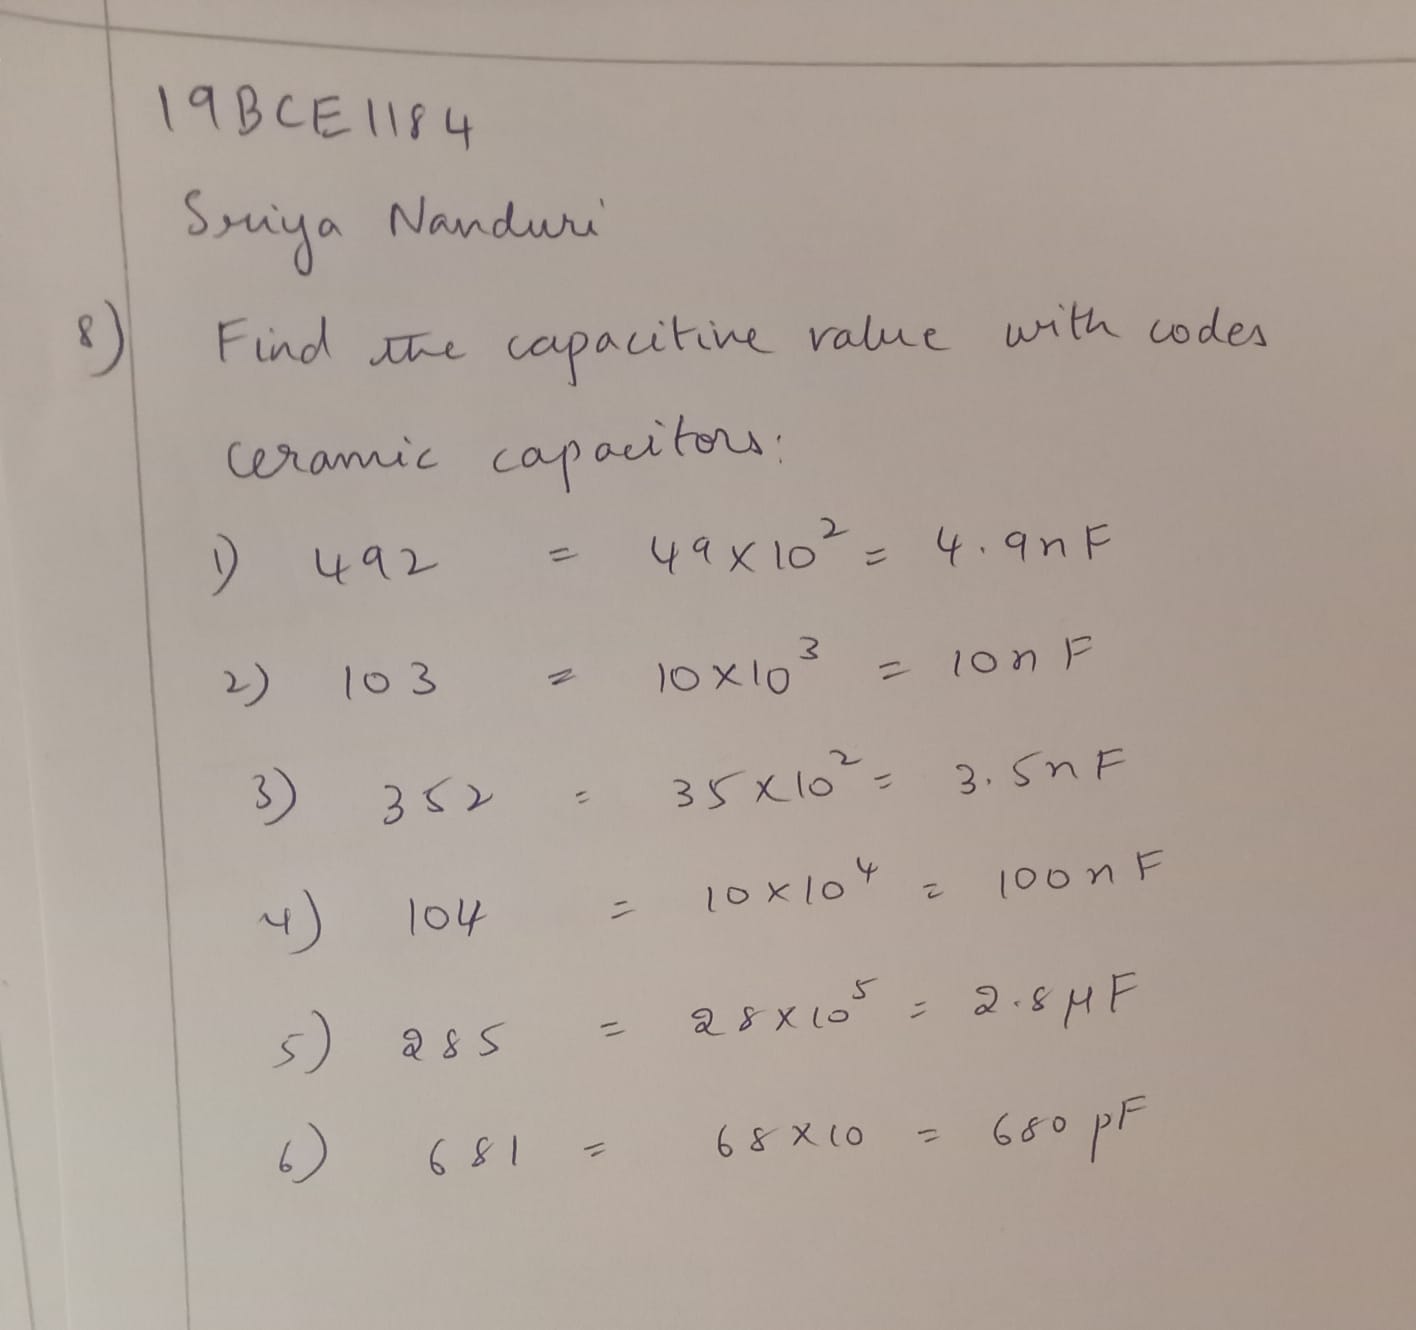 19BCE1184
Sriya Nanduri
8) Find the capacitive value with codes
ceramic capacitors:
1) 492 = 49 x 10² = 4.9nF
2) 103 = 10 x 10³ = 10nF
3) 352 = 35 x 10² = 3.5nF
4) 104 = 10 x 10⁴ = 100nF
5) 285 = 28 x 10⁵ = 2.8μF
6) 681 = 68 x 10 = 680 pF